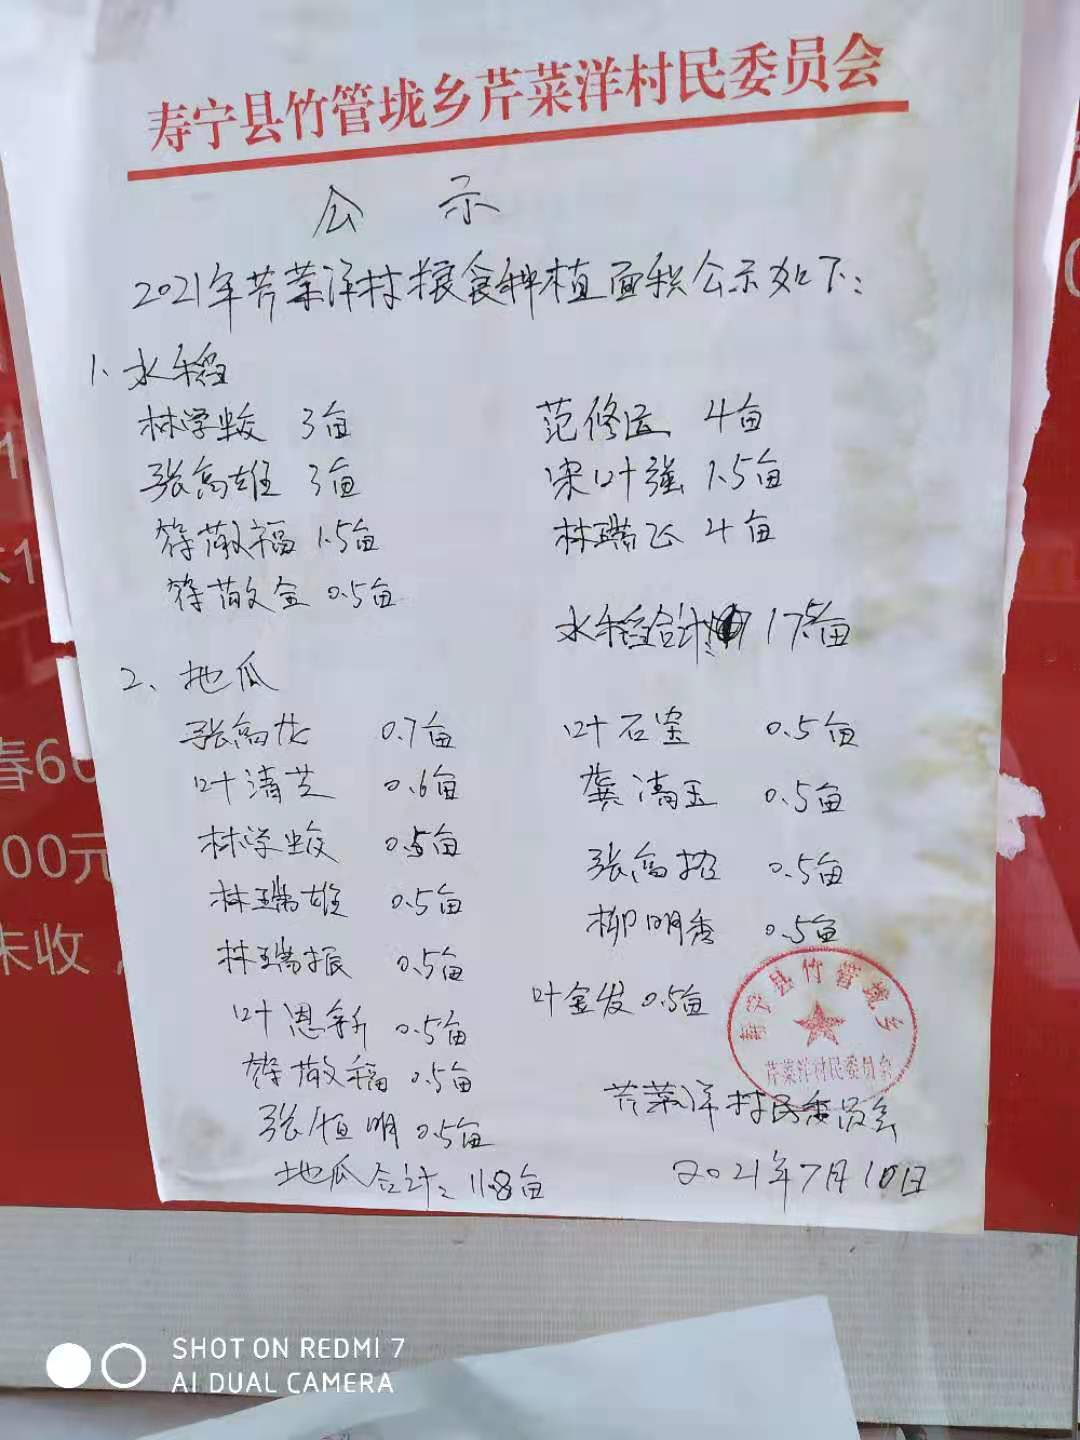 寿宁县竹管垅乡芹菜洋村民委员会
公 示
2021年芹菜洋村粮食种植面积公示如下：
1、水稻
林学 3亩 范修 4亩
张高雄 3亩 宋叶强 1.5亩
福 1.5亩 林瑞飞 4亩
金 0.5亩
水稻合计 17.5亩
2、地瓜
张高 0.7亩 叶石 0.5亩
叶清芝 0.6亩 龚清玉 0.5亩
林学 0.5亩 张高招 0.5亩
林瑞雄 0.5亩 柳明秀 0.5亩
林瑞振 0.5亩 叶金发 0.5亩
叶恩新 0.5亩
福 0.5亩
张恒明 0.5亩
地瓜合计：11.8亩
寿宁县竹管垅乡
芹菜洋村民委员会
芹菜洋村民委员会
2021年7月10日
春66
00元
未收，
SHOT ON REDMI 7
AI DUAL CAMERA